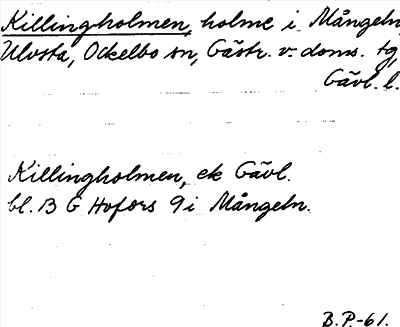 Killingholmen, holme i Mångeln,
Ulvsta, Ockelbo sn, Gästr. v. doms. tg,
Gävl. l.
Killingholmen, ek Gävl.
bl. 13 G Hofors 9 i Mångeln.
B.P.-61.